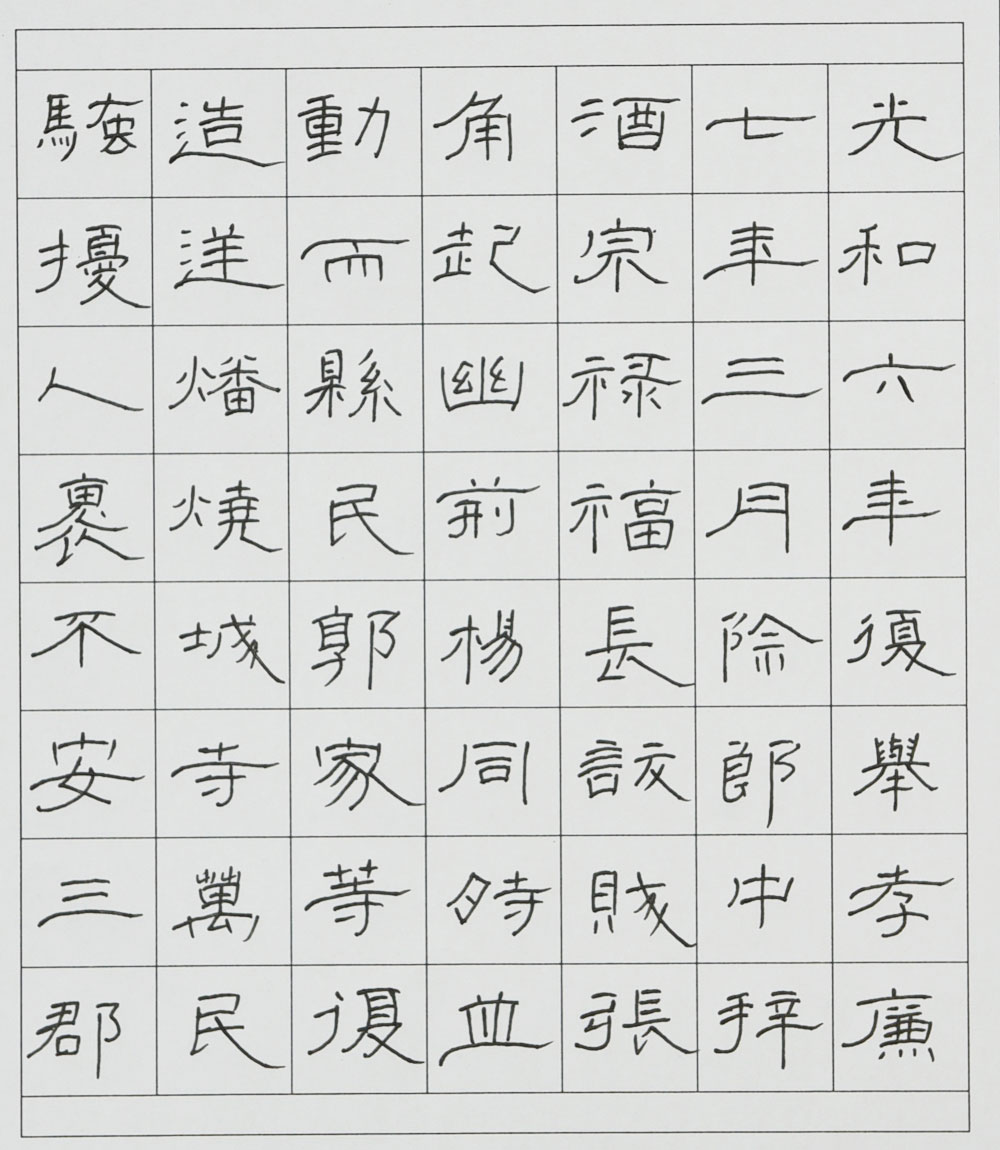 光和六年復舉孝廉
七年三月除郎中拜
酒宗禄福長訞賊張
角起幽荆楊同時並
動而縣民郭家等復
造逆燔燒城寺萬民
騷擾人裹不安三郡